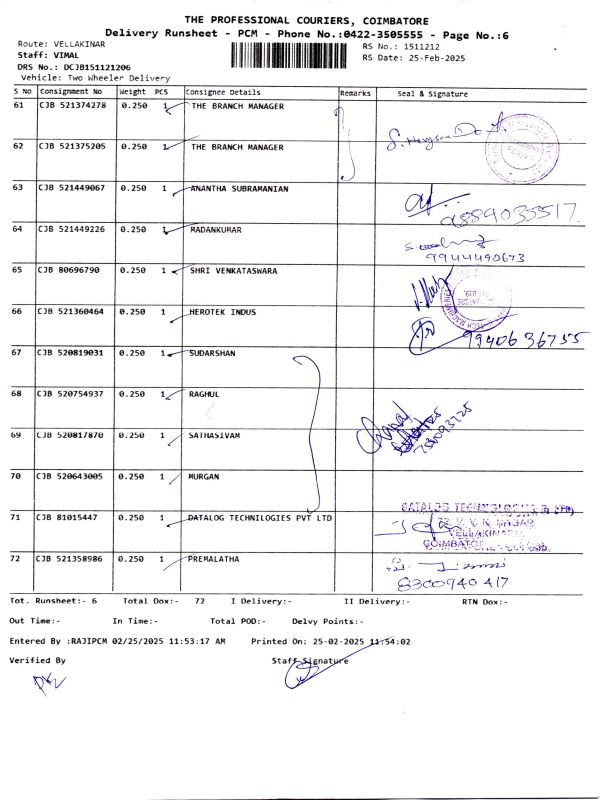 THE PROFESSIONAL COURIERS, COIMBATORE
Delivery Runsheet - PCM - Phone No.:0422-3505555 - Page No.:6
Route: VELLAKINAR RS No.: 1511212
Staff: VIMAL RS Date: 25-Feb-2025
DRS No.: DCJB151121206
Vehicle: Two Wheeler Delivery
S No Consignment No Weight PCS Consignee Details Remarks Seal & Signature
61 CJB 521374278 0.250 1 THE BRANCH MANAGER
62 CJB 521375205 0.250 1 THE BRANCH MANAGER
63 CJB 521449067 0.250 1 ANANTHA SUBRAMANIAN
64 CJB 521449226 0.250 1 MADANKUMAR
9944490673
65 CJB 80696790 0.250 1 SHRI VENKATASWARA
66 CJB 521360464 0.250 1 HEROTEK INDUS
9940636755
67 CJB 520819031 0.250 1 SUDARSHAN
68 CJB 520754937 0.250 1 RAGHUL
69 CJB 520817870 0.250 1 SATHASIVAM
70 CJB 520643005 0.250 1 MURGAN
71 CJB 81015447 0.250 1 DATALOG TECHNILOGIES PVT LTD
VELLAKINAR
72 CJB 521358986 0.250 1 PREMALATHA
8300940417
Tot. Runsheet:- 6 Total Dox:- 72 I Delivery:- II Delivery:- RTN Dox:-
Out Time:- In Time:- Total POD:- Delvy Points:-
Entered By :RAJIPCM 02/25/2025 11:53:17 AM Printed On: 25-02-2025 11:54:02
Verified By Staff Signature